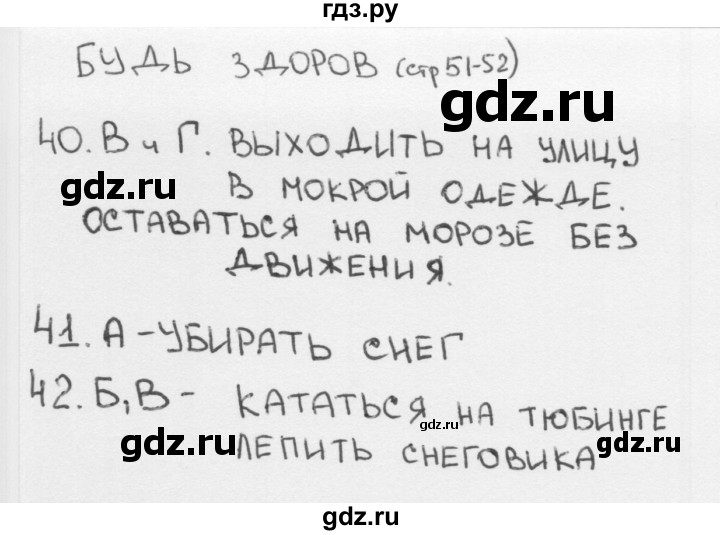 гдз.ру
БУДЬ ЗДОРОВ (стр 51-52)
gdz.ru
40. В и Г. ВЫХОДИТЬ НА УЛИЦУ
gdz.ru В МОКРОЙ ОДЕЖДЕ.
ОСТАВАТЬСЯ НА МОРОЗЕ БЕЗ
ДВИЖЕНИЯ.
41. А - УБИРАТЬ СНЕГ
42. Б, В - КАТАТЬСЯ НА ТЮБИНГЕ
gdz.ru
gdz.ru ЛЕПИТЬ СНЕГОВИКА gdz.ru
gdz.ru